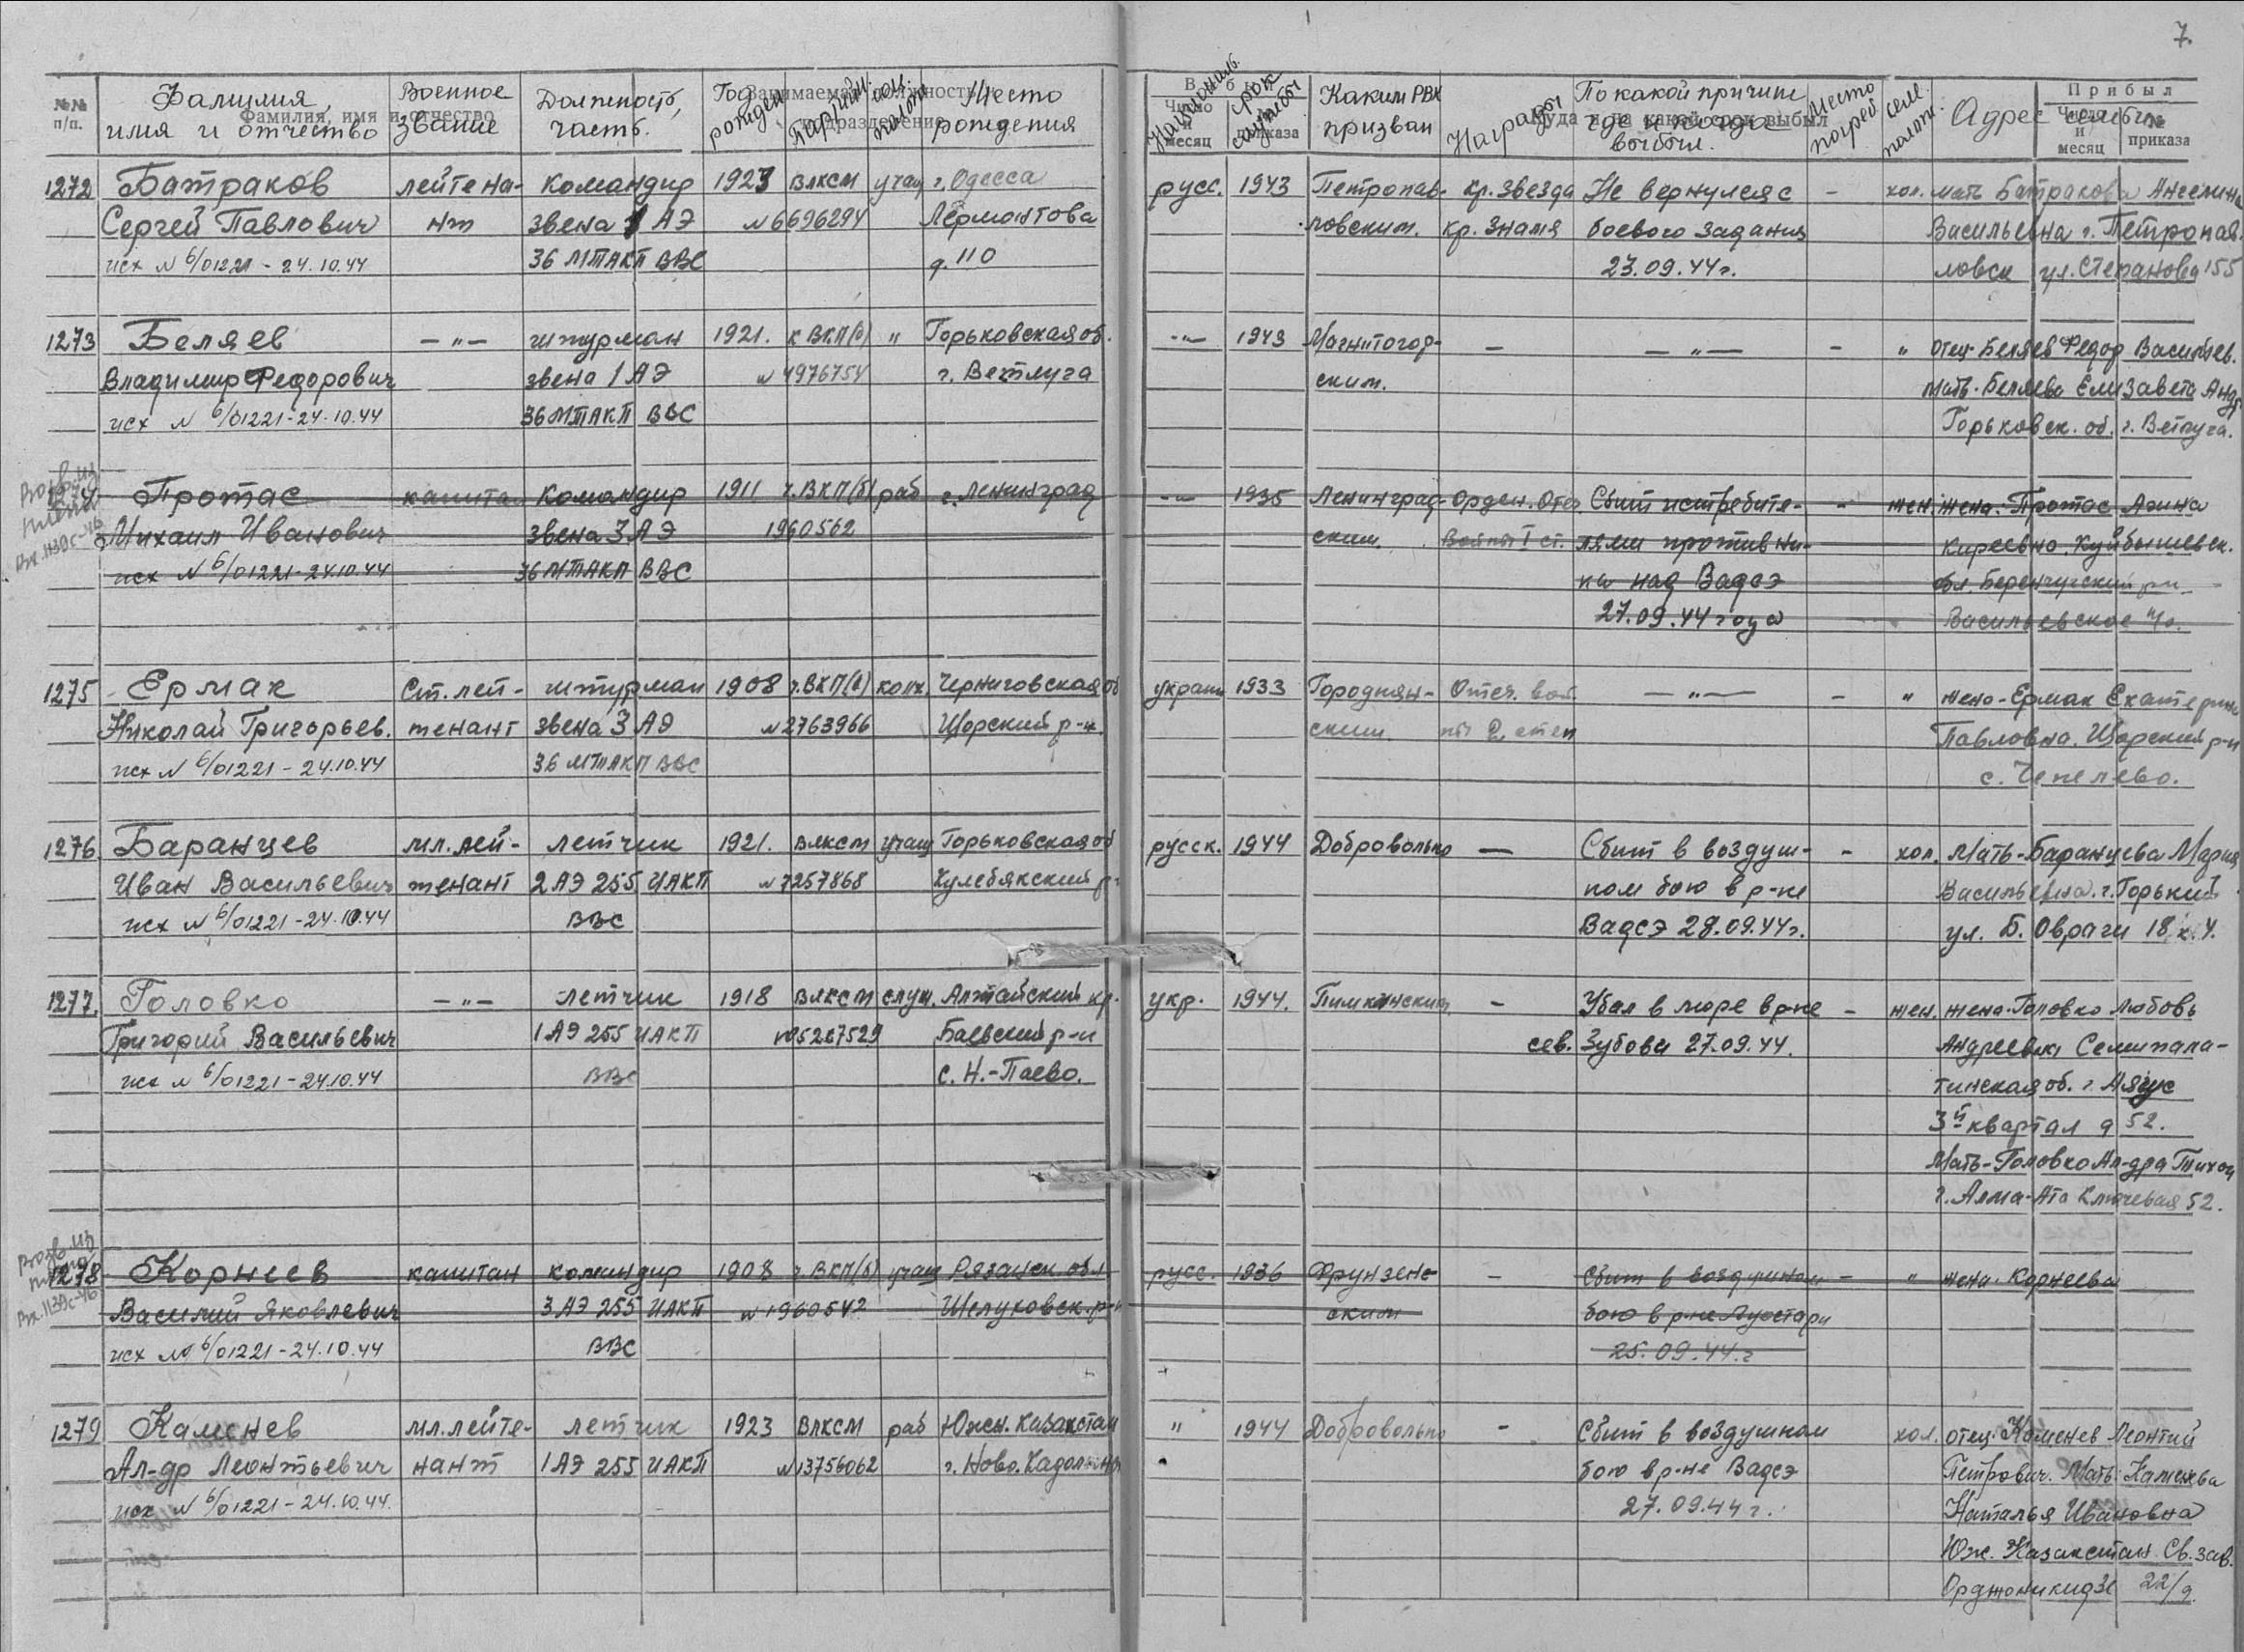 7.
№№ п/п.
Фамилия, имя и отчество
Военное звание
Должность, часть.
Год рожден.
Партийн.
соц. полож.
Место рождения
Национальн.
срок службы
Каким РВК призван
Награды
По какой причине где и когда выбыл.
Место погреб.
сем. полож.
Адрес семьи
Фамилия, имя и отчество
Занимаемая должность и подразделение
Число и месяц
№ приказа
Куда и на какой срок выбыл
Прибыл
Число и месяц
№ приказа
1272 Батраков лейтена- командир 1923 ВЛКСМ учащ г. Одесса русс. 1943 Петропав- кр. звезда Не вернулся с - хол. мать Батракова Ангелина
Сергей Павлович нт звена 1 АЭ №6696294 Лермонтова ловским. кр. знамя боевого задания Васильевна г. Петропав-
исх № б/01221 - 24.10.44 36 МТАКП ВВС д. 110 23.09.44г. ловск ул. Степанова 155
1273 Беляев —"— штурман 1921. к ВКП(б) " Горьковская об. —"— 1943 Магнитогор- — —"— - " отец-Беляев Федор Васильев.
Владимир Федорович звена 1 АЭ №4976754 г. Ветлуга ским. Мать-Беляева Елизавета Андр.
исх № б/01221-24.10.44 36 МТАКП ВВС Горьковск. об. г. Ветлуга.
Возвр. из плена
Вх. 1139с-46
1274 Протас капитан командир 1911 ч.ВКП(б) раб г. Ленинград —"— 1935 Ленинград- Орден. Отеч. Сбит истребите- - жен. жена-Протас
Михаил Иванович звена 3 АЭ 1960562 ским. Войны I ст. лями противни- Киреевна. Куйбышевск.
исх № б/01221-24.10.44 36 МТАКП ВВС ка над Вадсэ обл.
27.09.44 года Васильевское
1275 Ермак Ст. лей- штурман 1908 ч.ВКП(б) колх. Черниговская об украин 1933 Городнян- Отеч. вой- —"— - " жена-Ермак Екатерина
Николай Григорьев. тенант звена 3 АЭ №2763966 Щорский р-н. ским ны 2 степ Павловна. Щорский р-н
исх № б/01221 - 24.10.44 36 МТАКП ВВС с. Чепелево.
1276. Баранцев мл. лей- летчик 1921. ВЛКСМ учащ Горьковская об русск. 1944 Добровольно — Сбит в воздуш- - хол. Мать-Баранцева Мария
Иван Васильевич тенант 2 АЭ 255 ИАКП №7257868 Кулебякский р- ном бою в р-не Васильевна. г. Горький
исх № б/01221-24.10.44 ВВС Вадсэ 28.09.44г. ул. Б. Овраги 18 к. 4.
1277. Головко —"— летчик 1918 ВЛКСМ служ. Алтайский кр. укр. 1944. - Упал в море в р-не - жен. жена-Головко Любовь
Григорий Васильевич 1 АЭ 255 ИАКП №5267529 Баевский р-н сев. Зубова 27.09.44. Андреевна Семипала-
исх № б/01221-24.10.44 ВВС с. Н.-Паево. тинская об. г. Аягус
3й квартал д 52.
Мать-Головко Ал-дра Тихон
г. Алма-Ата Ключевая 52.
Возвр. из плена
Вх. 1139с-46
1278 Корнеев капитан командир 1908 ч.ВКП(б) учащ Рязанск обл русс. 1936 Фрунзен- - Сбит в воздушном - " жена-Корнеева
Василий Яковлевич 3 АЭ 255 ИАКП №1960542 Шелуховск. р-н ским бою в р-не Луостари
исх № б/01221-24.10.44 ВВС 25.09.44.г
1279 Каменев мл. лейте- летчик 1923 ВЛКСМ раб Южн. Казахстан " 1944 Добровольно - Сбит в воздушном хол. отец-Каменев Леонтий
Ал-др Леонтьевич нант 1 АЭ 255 ИАКП №13756062 г. Ново. бою в р-не Вадсэ Петрович. Мать-Каменева
исх № б/01221-24.10.44. 27.09.44г. Наталья Ивановна
Юж. Казахстан. Св. зав.
Орджоникидзе 22/9.